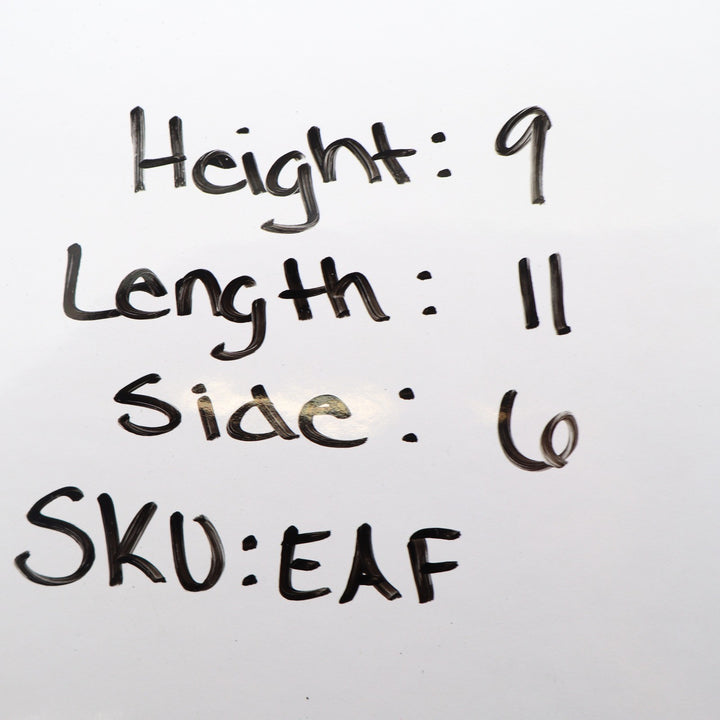 Height: 9
Length: 11
Side: 6
SKU:EAF